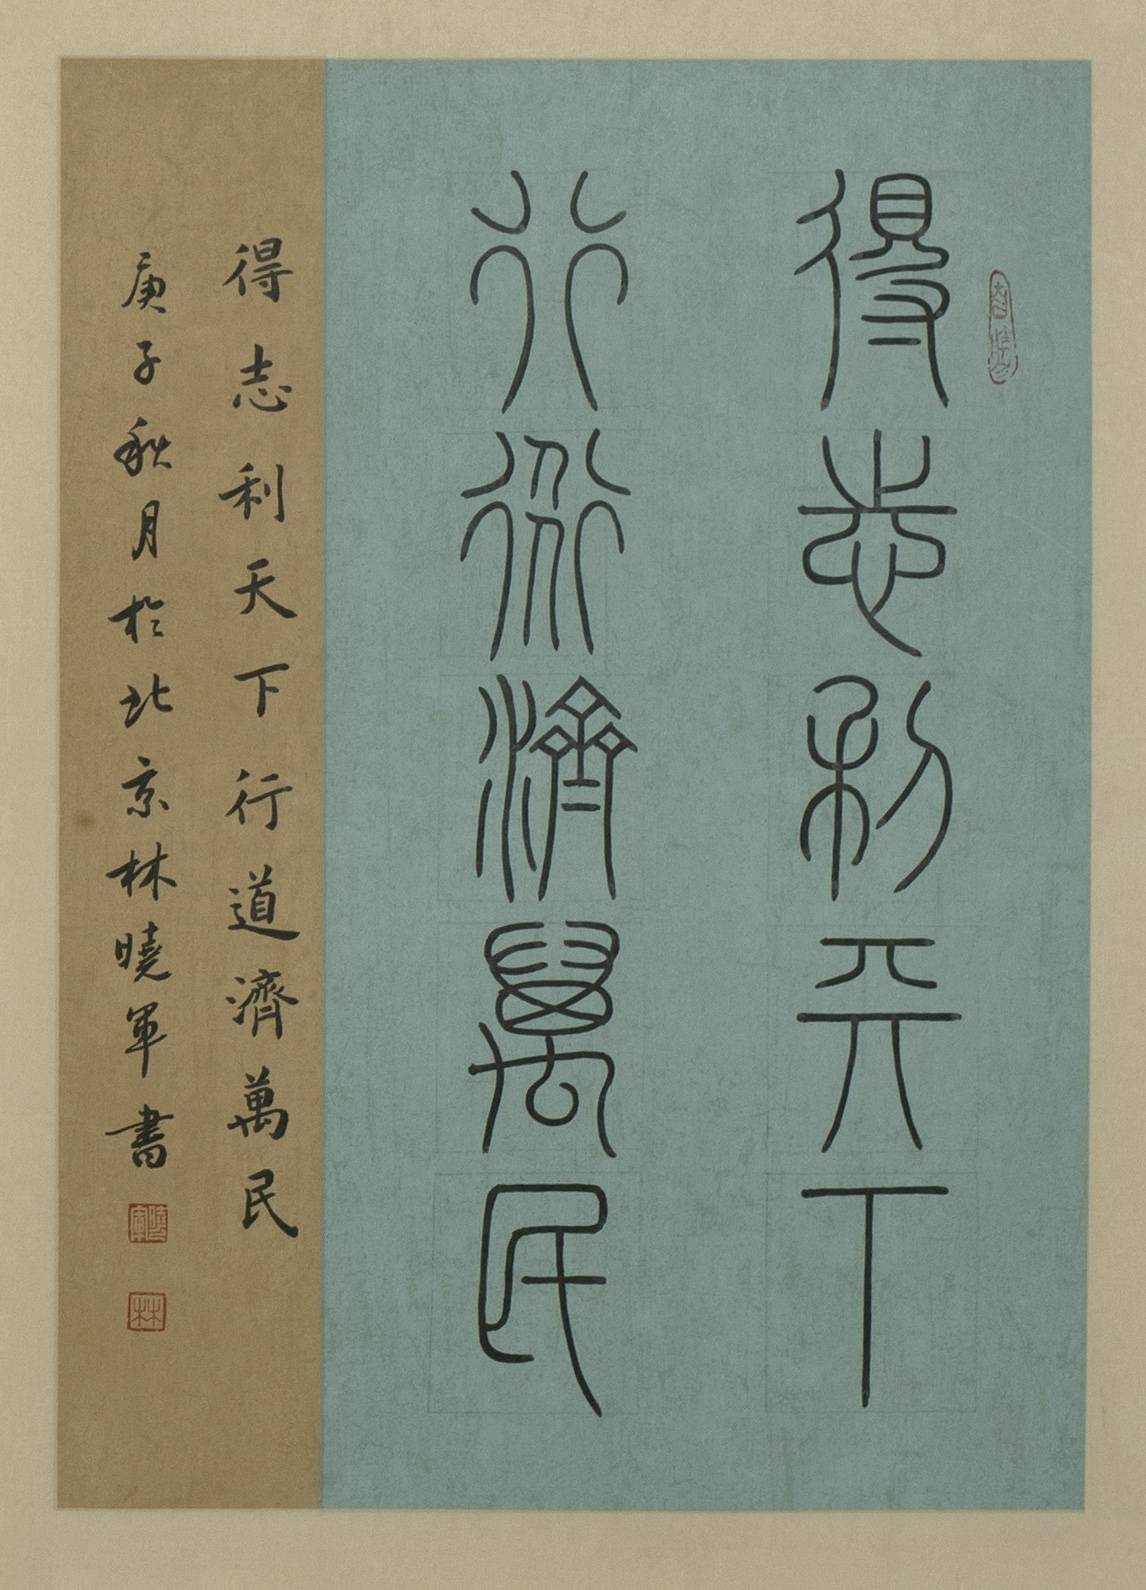 得志利天下
行道濟萬民
得志利天下行道濟萬民
庚子秋月於北京林曉軍書
曉軍
林